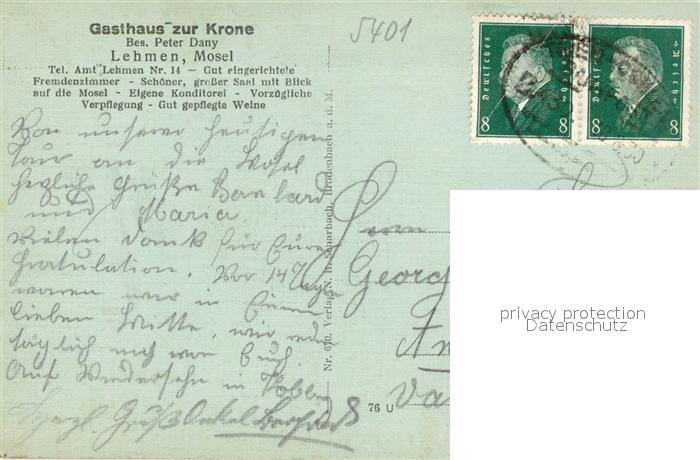 Gasthaus zur Krone
Bes. Peter Dany
Lehmen, Mosel
Tel. Amt Lehmen Nr. 14 — Gut eingerichtete
Fremdenzimmer - Schöner, großer Saal mit Blick
auf die Mosel - Eigene Konditorei - Vorzügliche
Verpflegung - Gut gepflegte Weine
5401
Deutsches Reich
8 8
Deutsches Reich
8 8
Von unserer heutigen
Tour an die Mosel
herzliche Grüße Bernhard
und Maria.
Vielen Dank für Eure
Gratulation. Vor 14 Tagen
waren wir in Eurer
lieben Mitte, wir reden
täglich noch von Euch.
Auf Wiedersehn in
Herzl. Grüß Onkel
Nr. 670. Verlag N. R. Scharbach, Brodenbach a. d. M.
76 U
Herrn
Georg
privacy protection
Datenschutz